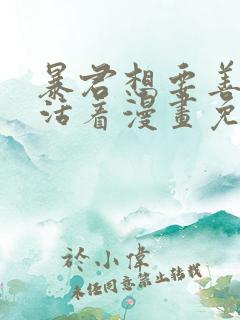 暴君想要善
活着漫畫免
於小偉
未经同意禁止转载